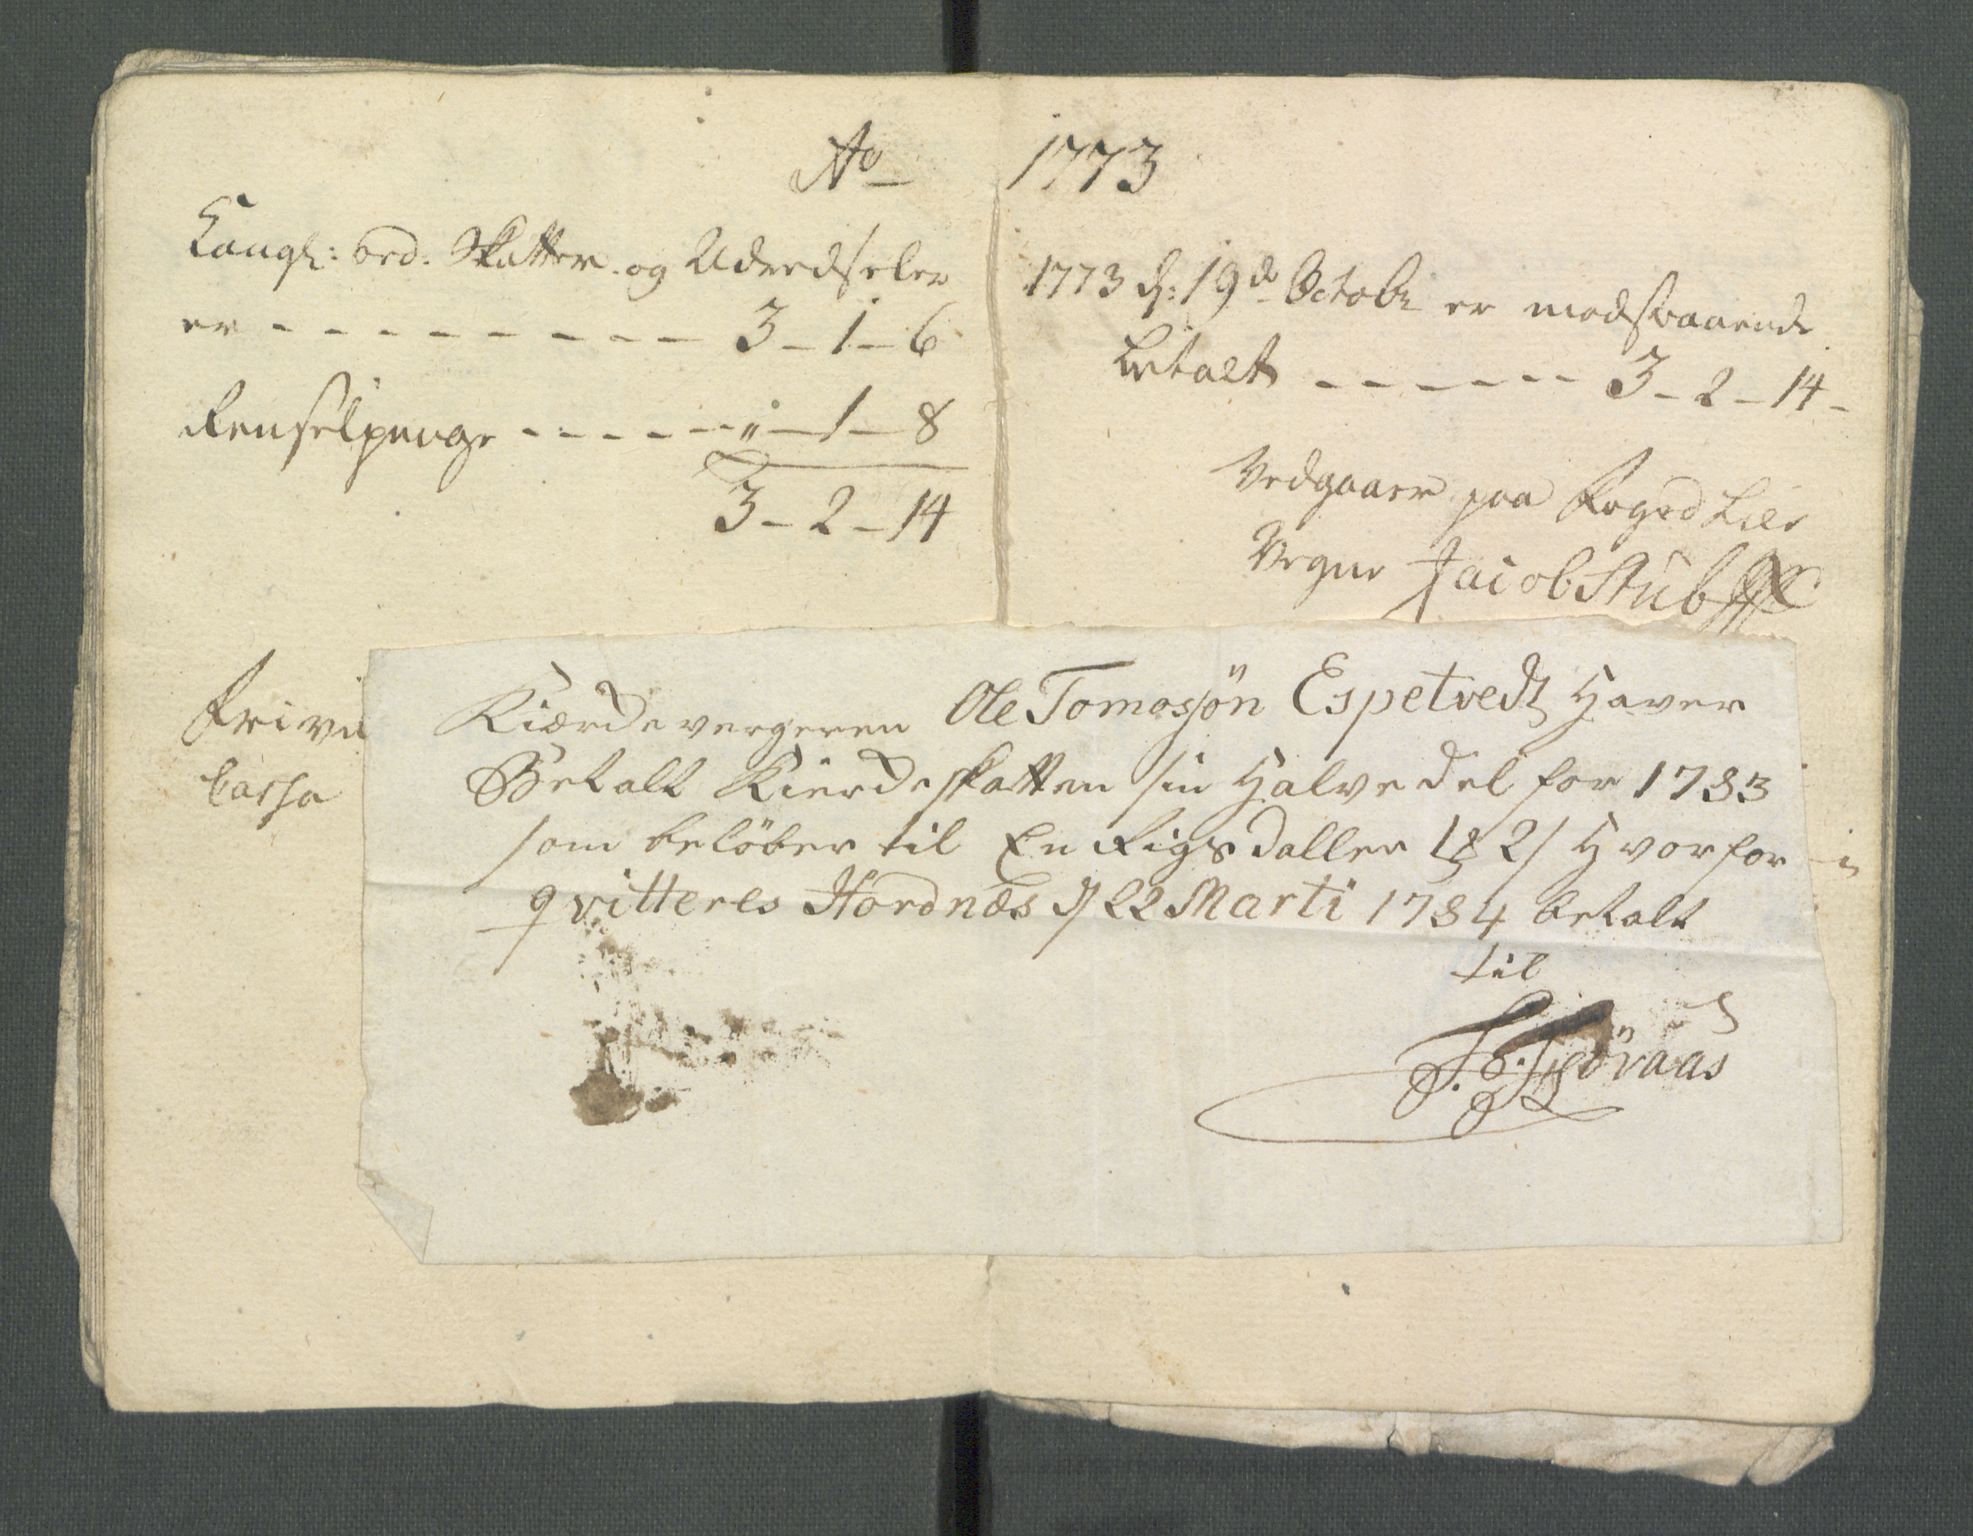 Ao 1773
Kongl: ord. Skatter og Udredseler
er - - - - - - - - - 3 - 1 - 6
Renselpenge - - - - - - " - 1 - 8
3 - 2 - 14
1773 d: 19de Octobr er modsvaarende
betalt - - - - - - 3 - 2 - 14 -
Vedgaaer paa Foged Lies
Vegne Jacob Stub
Priva
Cassa
Kiærdevergeren Ole Tomosjön Espetvedt Haver
Betalt Kierdeskatten sin Halvedel for 1783
som belöber til En Rigsdaller 1 2/ Hvorfor
qvitteres Hordnæs d 22 Marti 1784 betalt
til